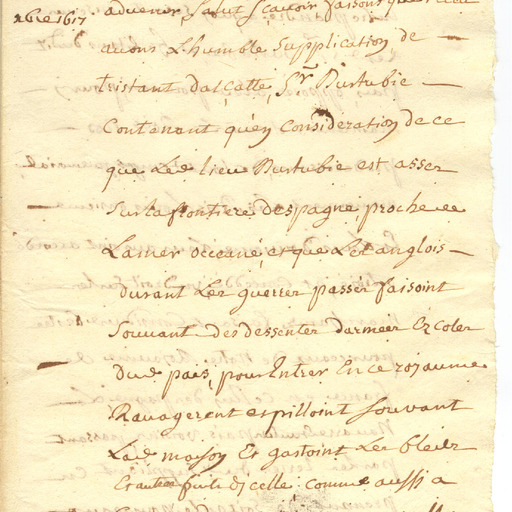 advenir Salut Scavoir faisons que
9bre 1617
avons L humble Supplication de
tristant Datçatte, Sr. Durtubie
Contenant qu'en Consideration de ce
que Led. lieu Durtubie est asser
sur la frontiere despagne, proche de
La mer occeane, et que Les anglois
durant Les guerres passés faisoint
Souvant des dessentes darmées Ez Coler
Dud. pais, pour Entrer En ce royaume
Ravageoent et pilloint Souvant
Lad. maison Et gastoint Les bleds
Et autres fruits dicelle comme aussi a